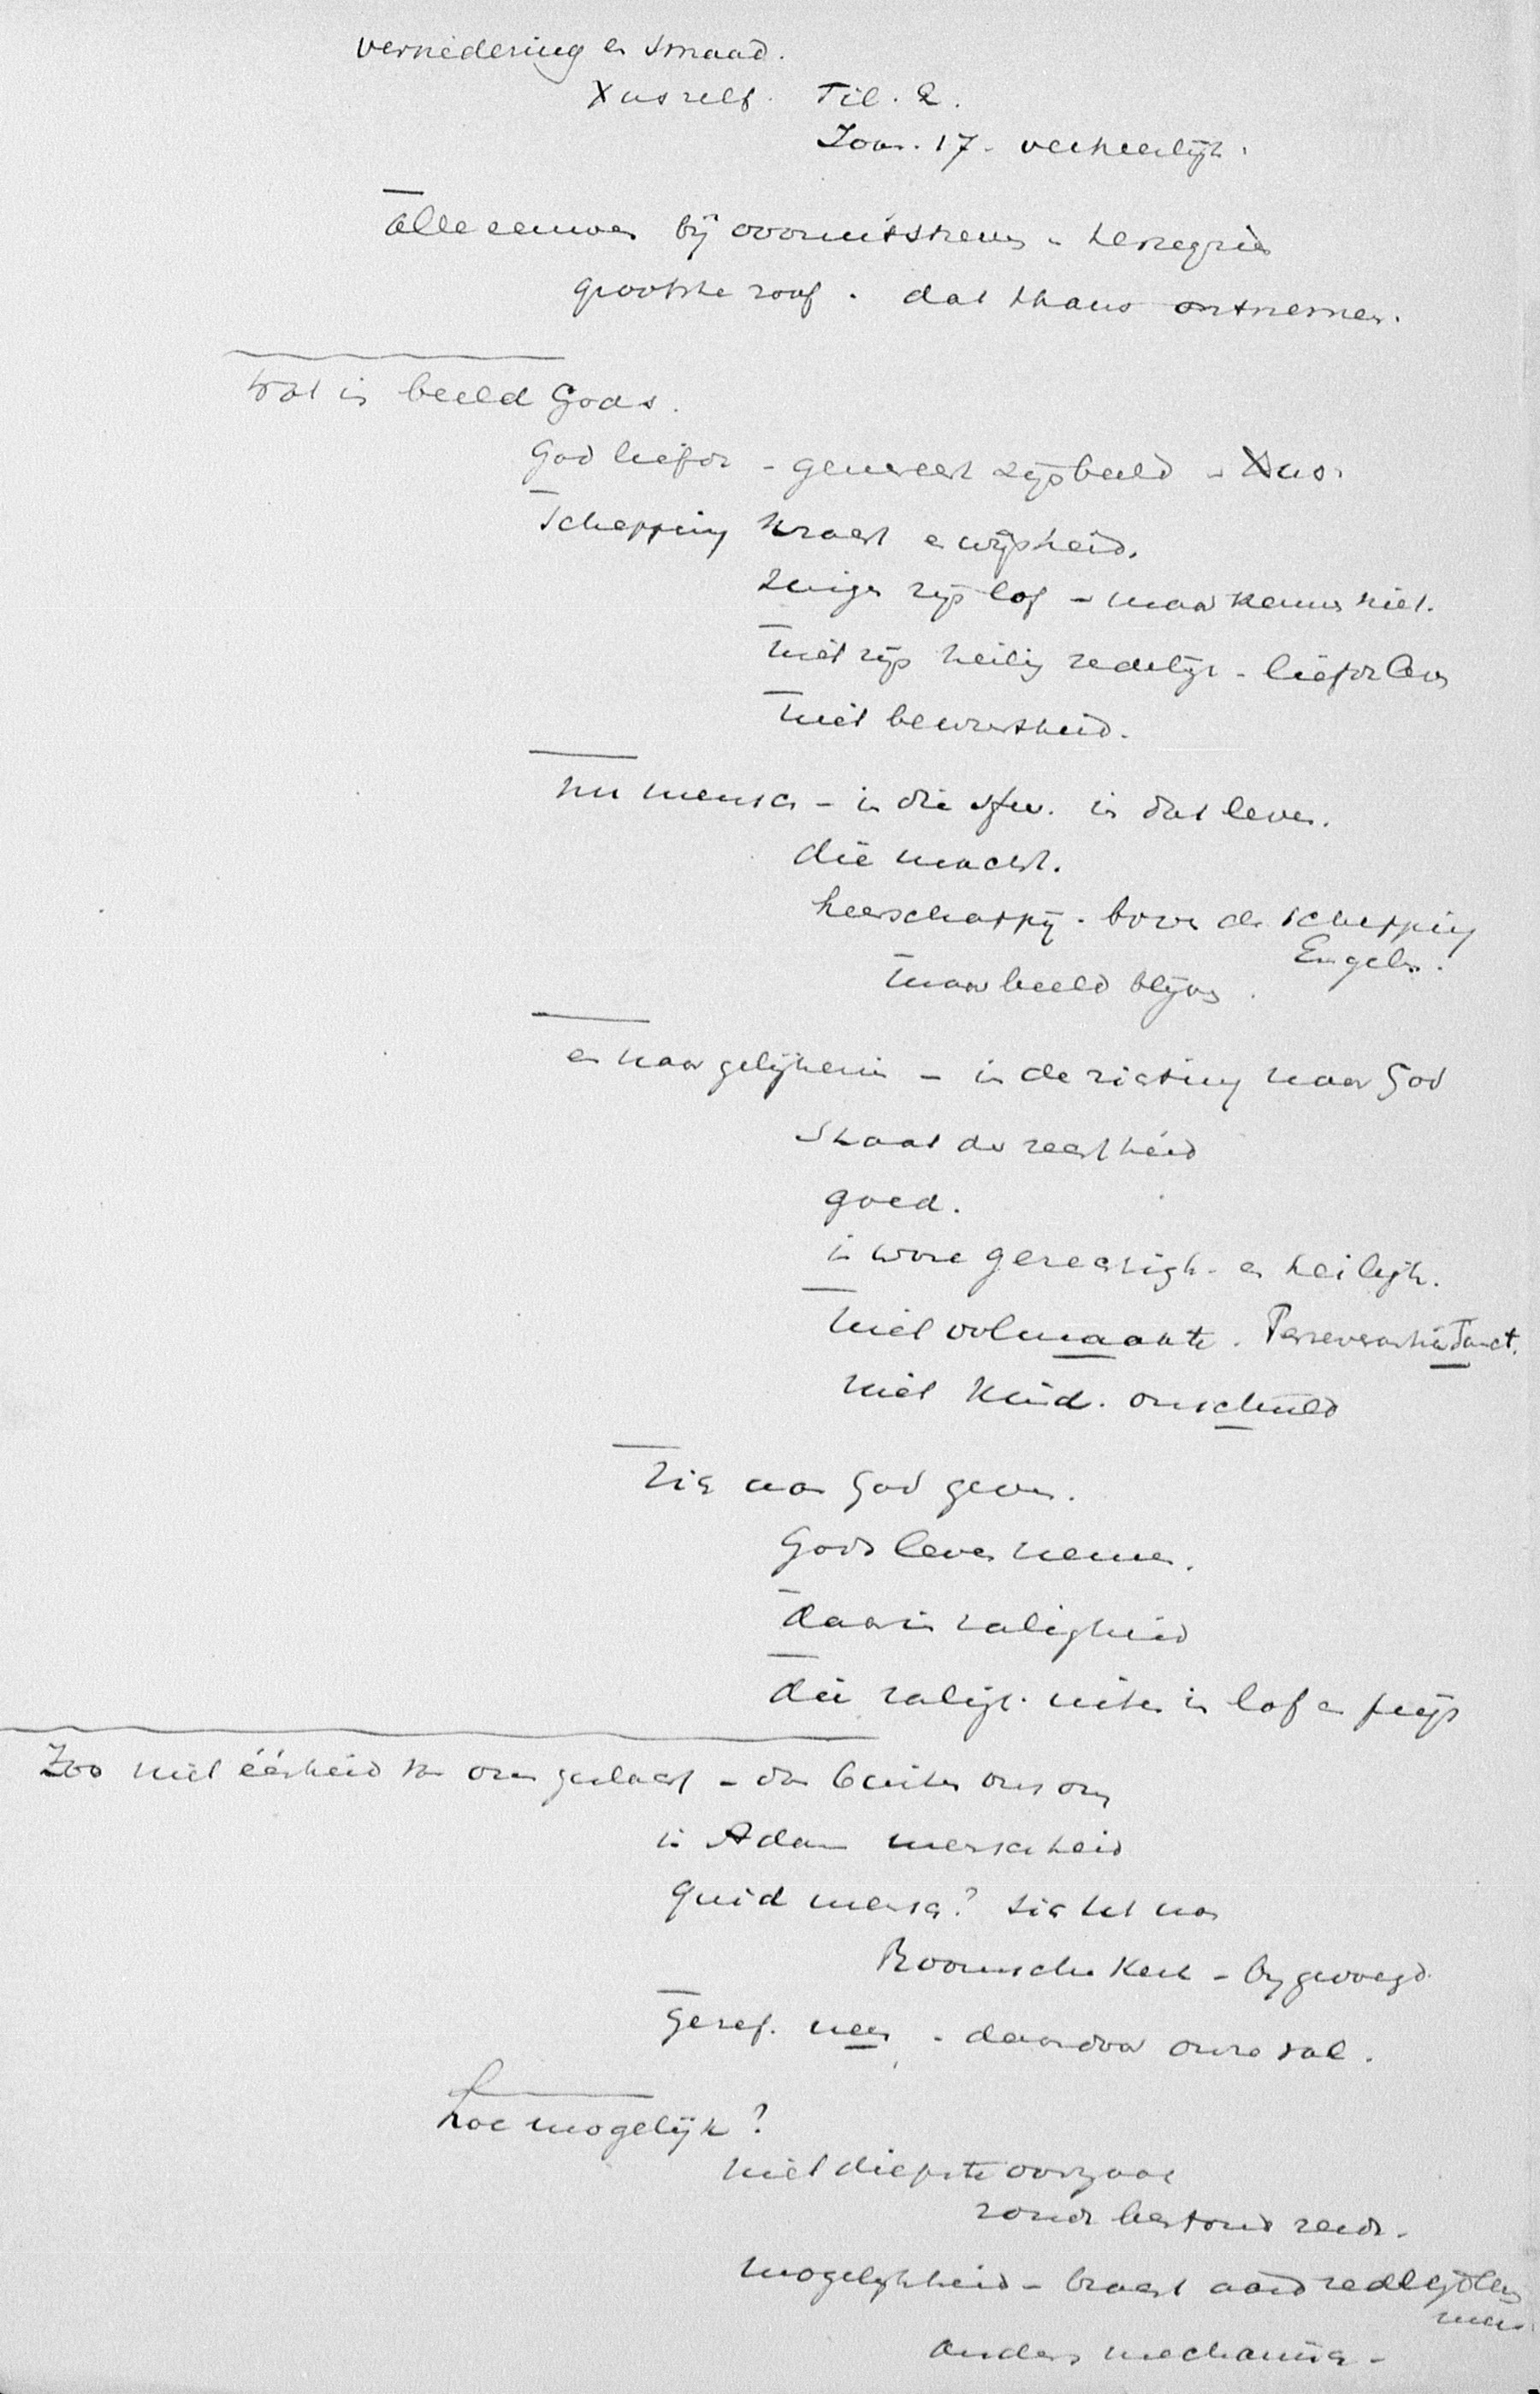 vernedering en smaad.
Xus zelf. Fil. 2.
Joan. 17. verheerlijk.
alle eeuwen bij vooruitstreven -
grootsche roof. dat thans ontnemen.
Wat is beeld Gods.
God liefde - genereert zijn beeld - Xus.
Schepping kracht en wijsheid.
zingen zijn lof - maar kennen niet.
niet zijn heilig redelijk - liefdeleven
niet bewustheid.
nu mensch - in die sfeer. in dat leven.
die macht.
heerschappij. boven de schepping
Engelen.
maar beeld blijven.
en naar gelijkenis - in de richting naar God
Staat der rechtheid
goed.
in ware gerechtigh. en heiligh.
niet volmaakte. Perseverantia Sanct.
niet kind. onschuld
Zich aan God geven.
Gods leven nemen.
daarin zaligheid
die zaligh. uiten in lof en prijs
Zoo niet éénheid van ons geslacht - dan buiten ons om
in Adam menschheid
quid mensch?
Roomsche Kerk - bijgevoegd.
Geref. neen. - daardoor onze val.
hoe mogelijk?
niet diepste oorzaak
zonde bestond reeds.
mogelijkheid - bracht aard redelijk leven
mee.
anders mechanisch -